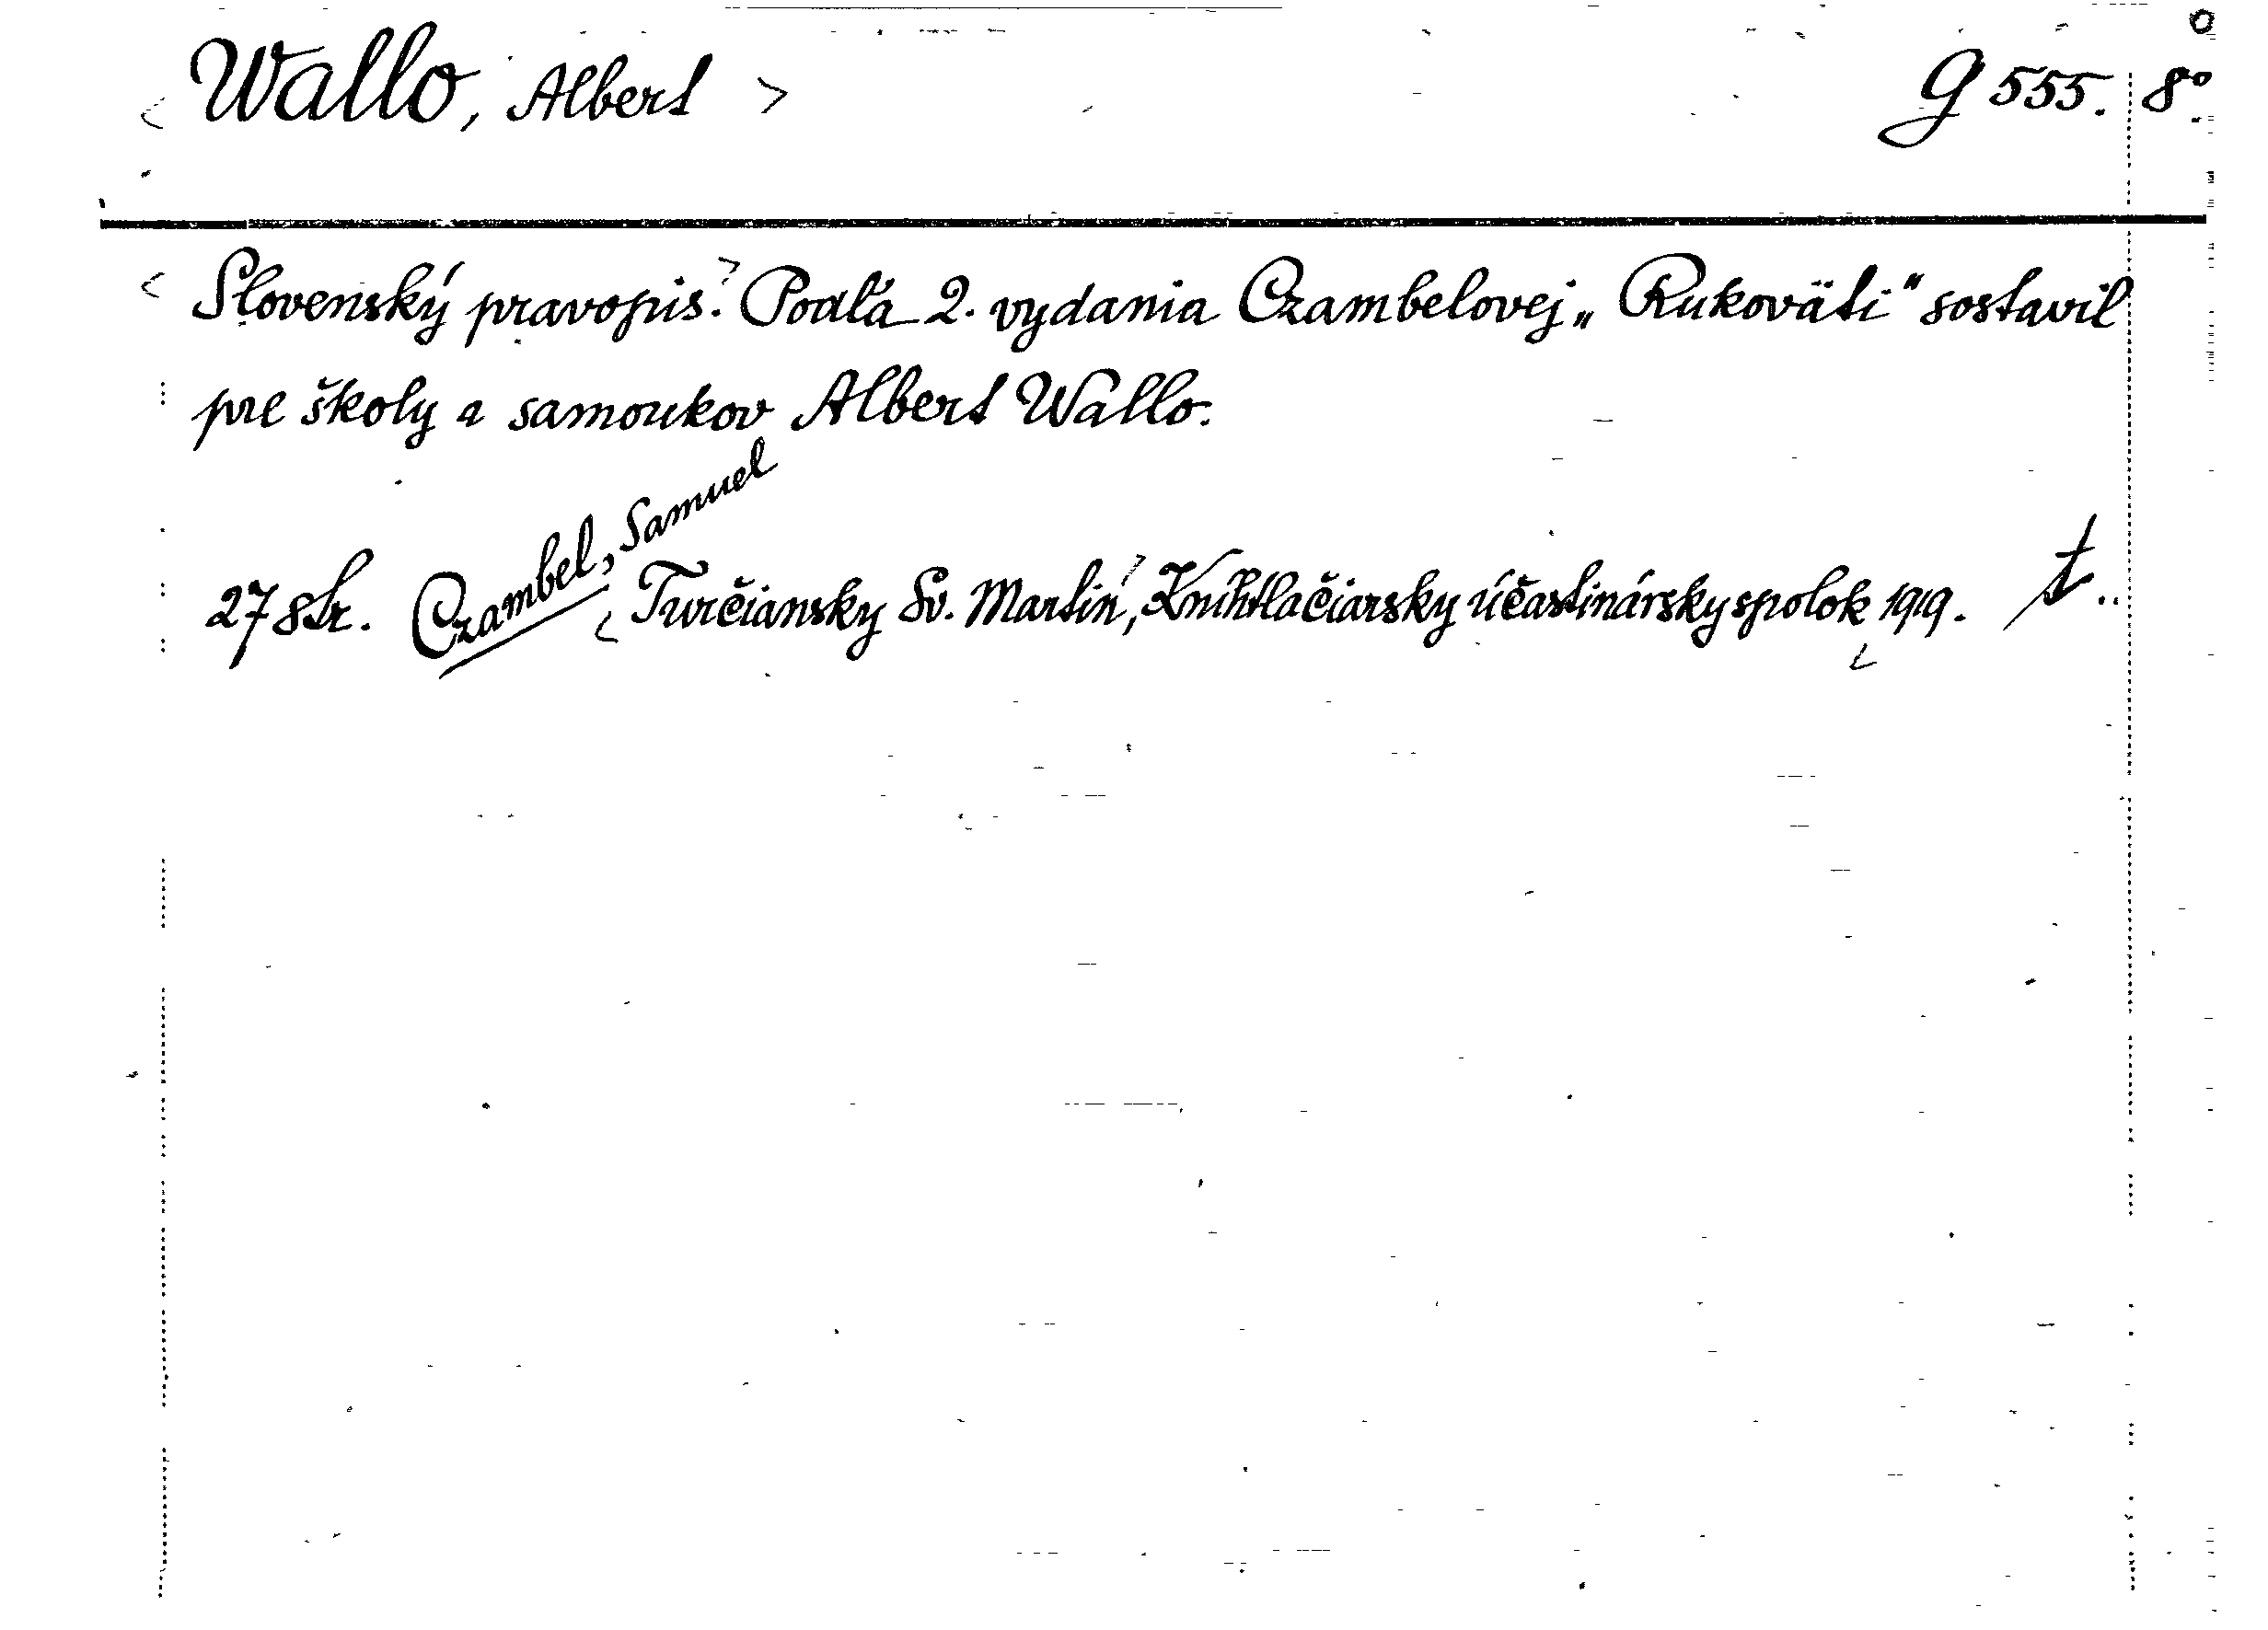 < Wallo, Albert > G 555. 8°.
< Slovenský pravopis.> Podľa 2. vydania Czambelovej „Rukoväti" sostavil
pre školy a samoukov Albert Wallo.
Czambel, Samuel
27 str. < Turčiansky Sv. Martin>, Knihtlačiarsky účastinársky spolok 1919.